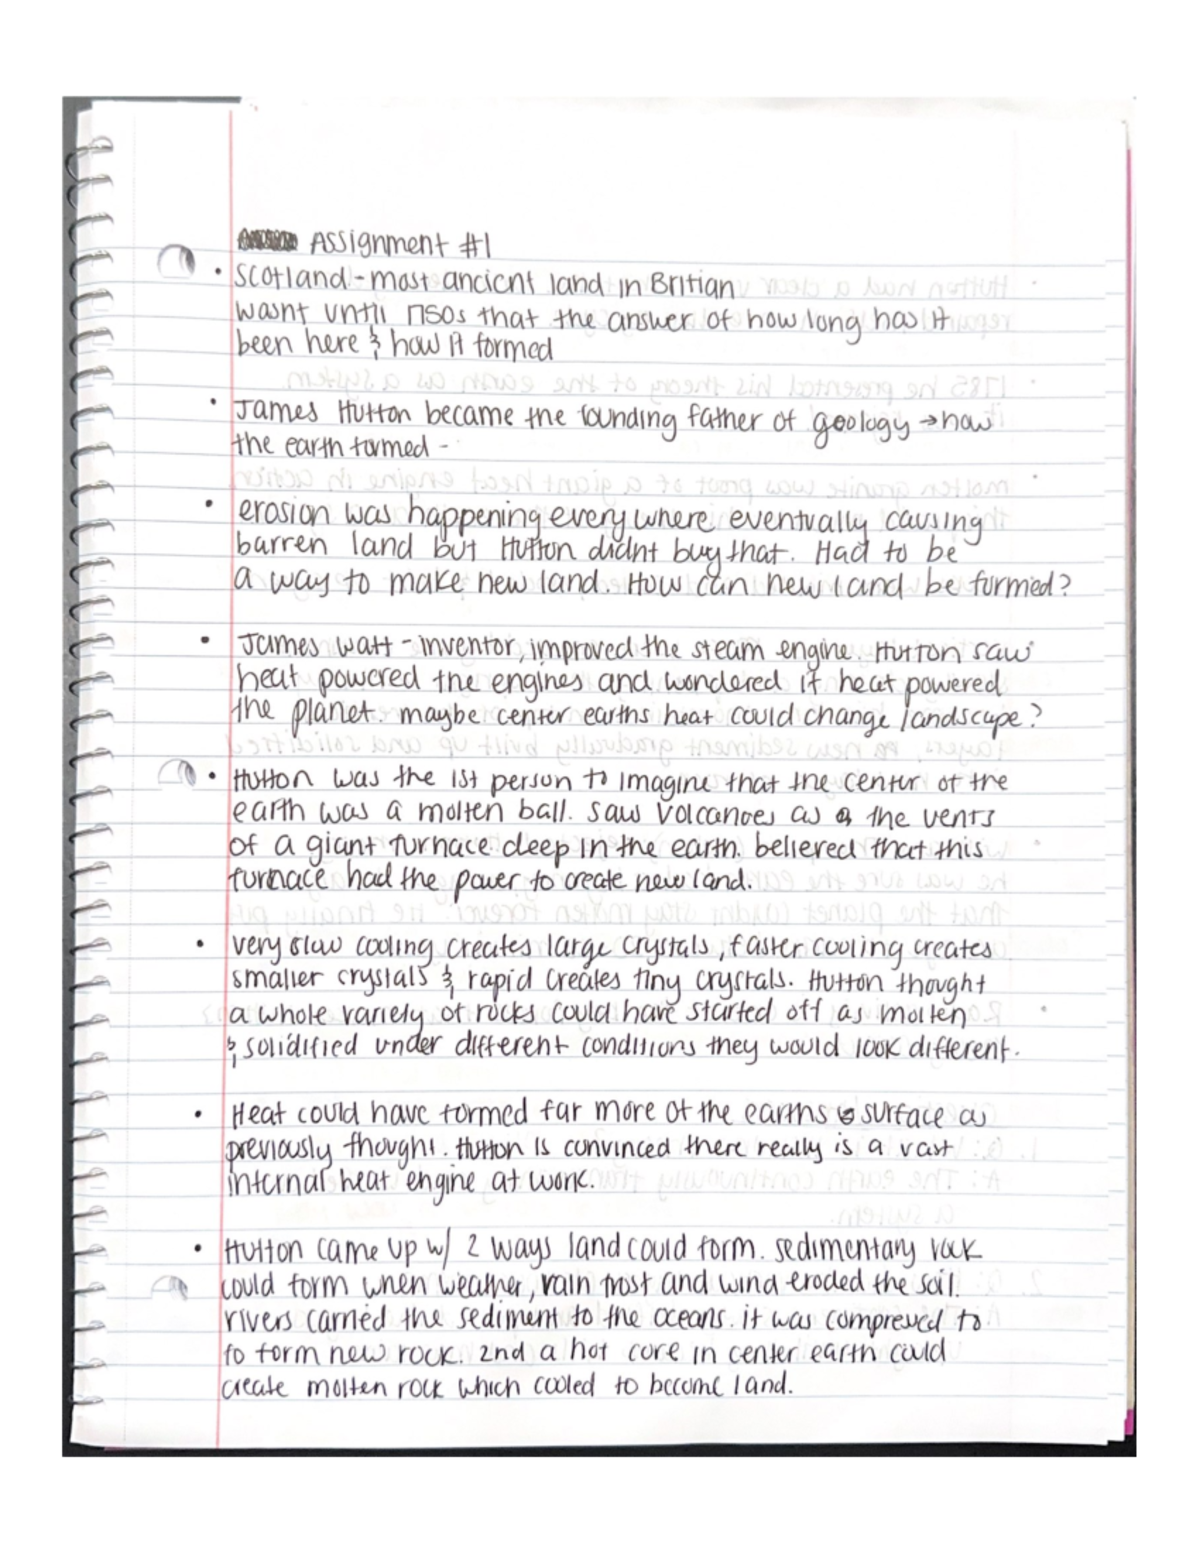 Assignment #1
• Scotland - most ancient land in Britian
wasnt until 1750s that the answer of how long has it
been here & how it formed
• James Hutton became the founding father of geology → how
the earth formed -
• erosion was happening everywhere eventually causing
barren land but Hutton didnt buy that. Had to be
a way to make new land. How can new land be formed?
• James Watt - inventor, improved the steam engine. Hutton saw
heat powered the engines and wondered if heat powered
the planet. maybe center earths heat could change landscape?
• Hutton was the 1st person to imagine that the center of the
earth was a molten ball. Saw Volcanoes as the vents
of a giant furnace deep in the earth. believed that this
furnace had the power to create new land.
• very slow cooling creates large crystals, faster cooling creates
smaller crystals & rapid creates tiny crystals. Hutton thought
a whole variety of rocks could have started off as molten
& solidified under different conditions they would look different.
• Heat could have formed far more of the earths surface as
previously thought. Hutton is convinced there really is a vast
internal heat engine at work.
• Hutton came up w/ 2 ways land could form. sedimentary rock
could form when weather, rain frost and wind eroded the soil.
rivers carried the sediment to the oceans. it was compressed to
to form new rock. 2nd a hot core in center earth could
create molten rock which cooled to become land.